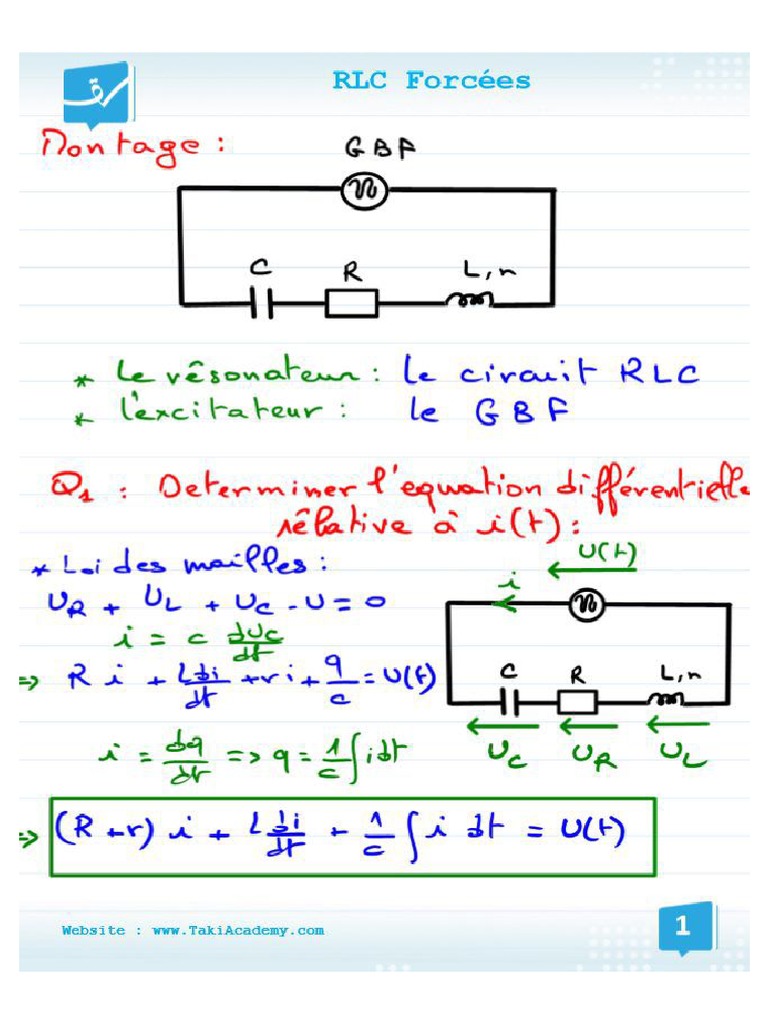 RLC Forcées
Montage :
GBF
C R L, r
* Le résonateur : le circuit RLC
* L'excitateur : le GBF
Q1 : Determiner l'equation différentielle
rélative à i(t) :
* Loi des mailles :
U(t)
i
UR + UL + UC - U = 0
i = c dUc/dt
=> R i + L di/dt + r i + q/c = U(t)
C R L, r
UC UR UL
i = dq/dt => q = 1/c ∫ i dt
=> (R + r) i + L di/dt + 1/c ∫ i dt = U(t)
Website : www.TakiAcademy.com
1